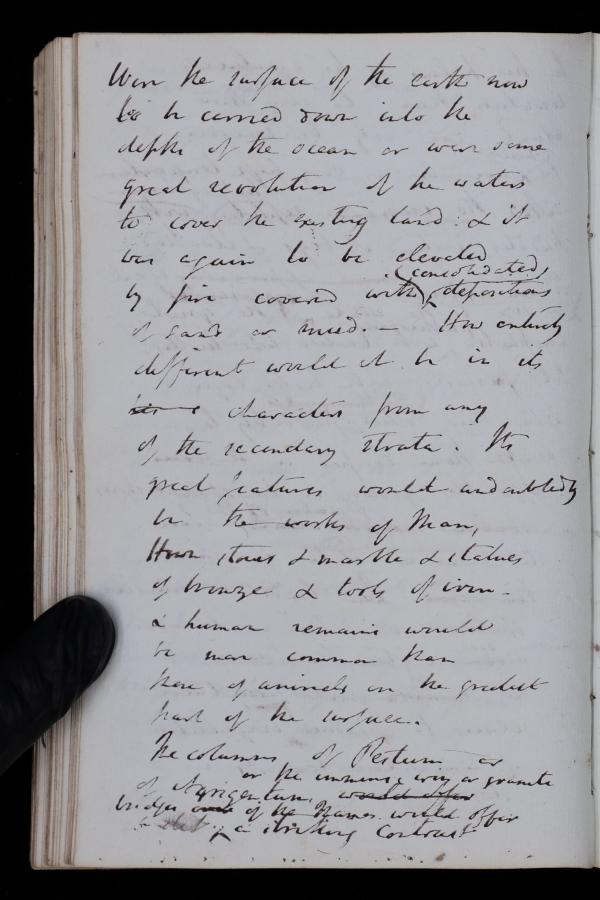 Were the surface of the earth now
to be carried down into the
depths of the ocean or were some
great revolution of the waters
to cover the existing land & it
was again to be elevated
by fire covered with (consolidated)
depositions
of sand or mud. – How entirely
different would it be in its
characters from any
of the secondary strata. Its
great features would undoubtedly
be the works of Man,
Hewn stones & marble & statues
of bronze & tools of iron –
& human remains would
be more common than
those of animals on the greatest
part of the surface.
The columns of Pestum or
of Agrigentum or the immense iron or granite
would offer
bridges of the Thames would offer
a striking Contrast